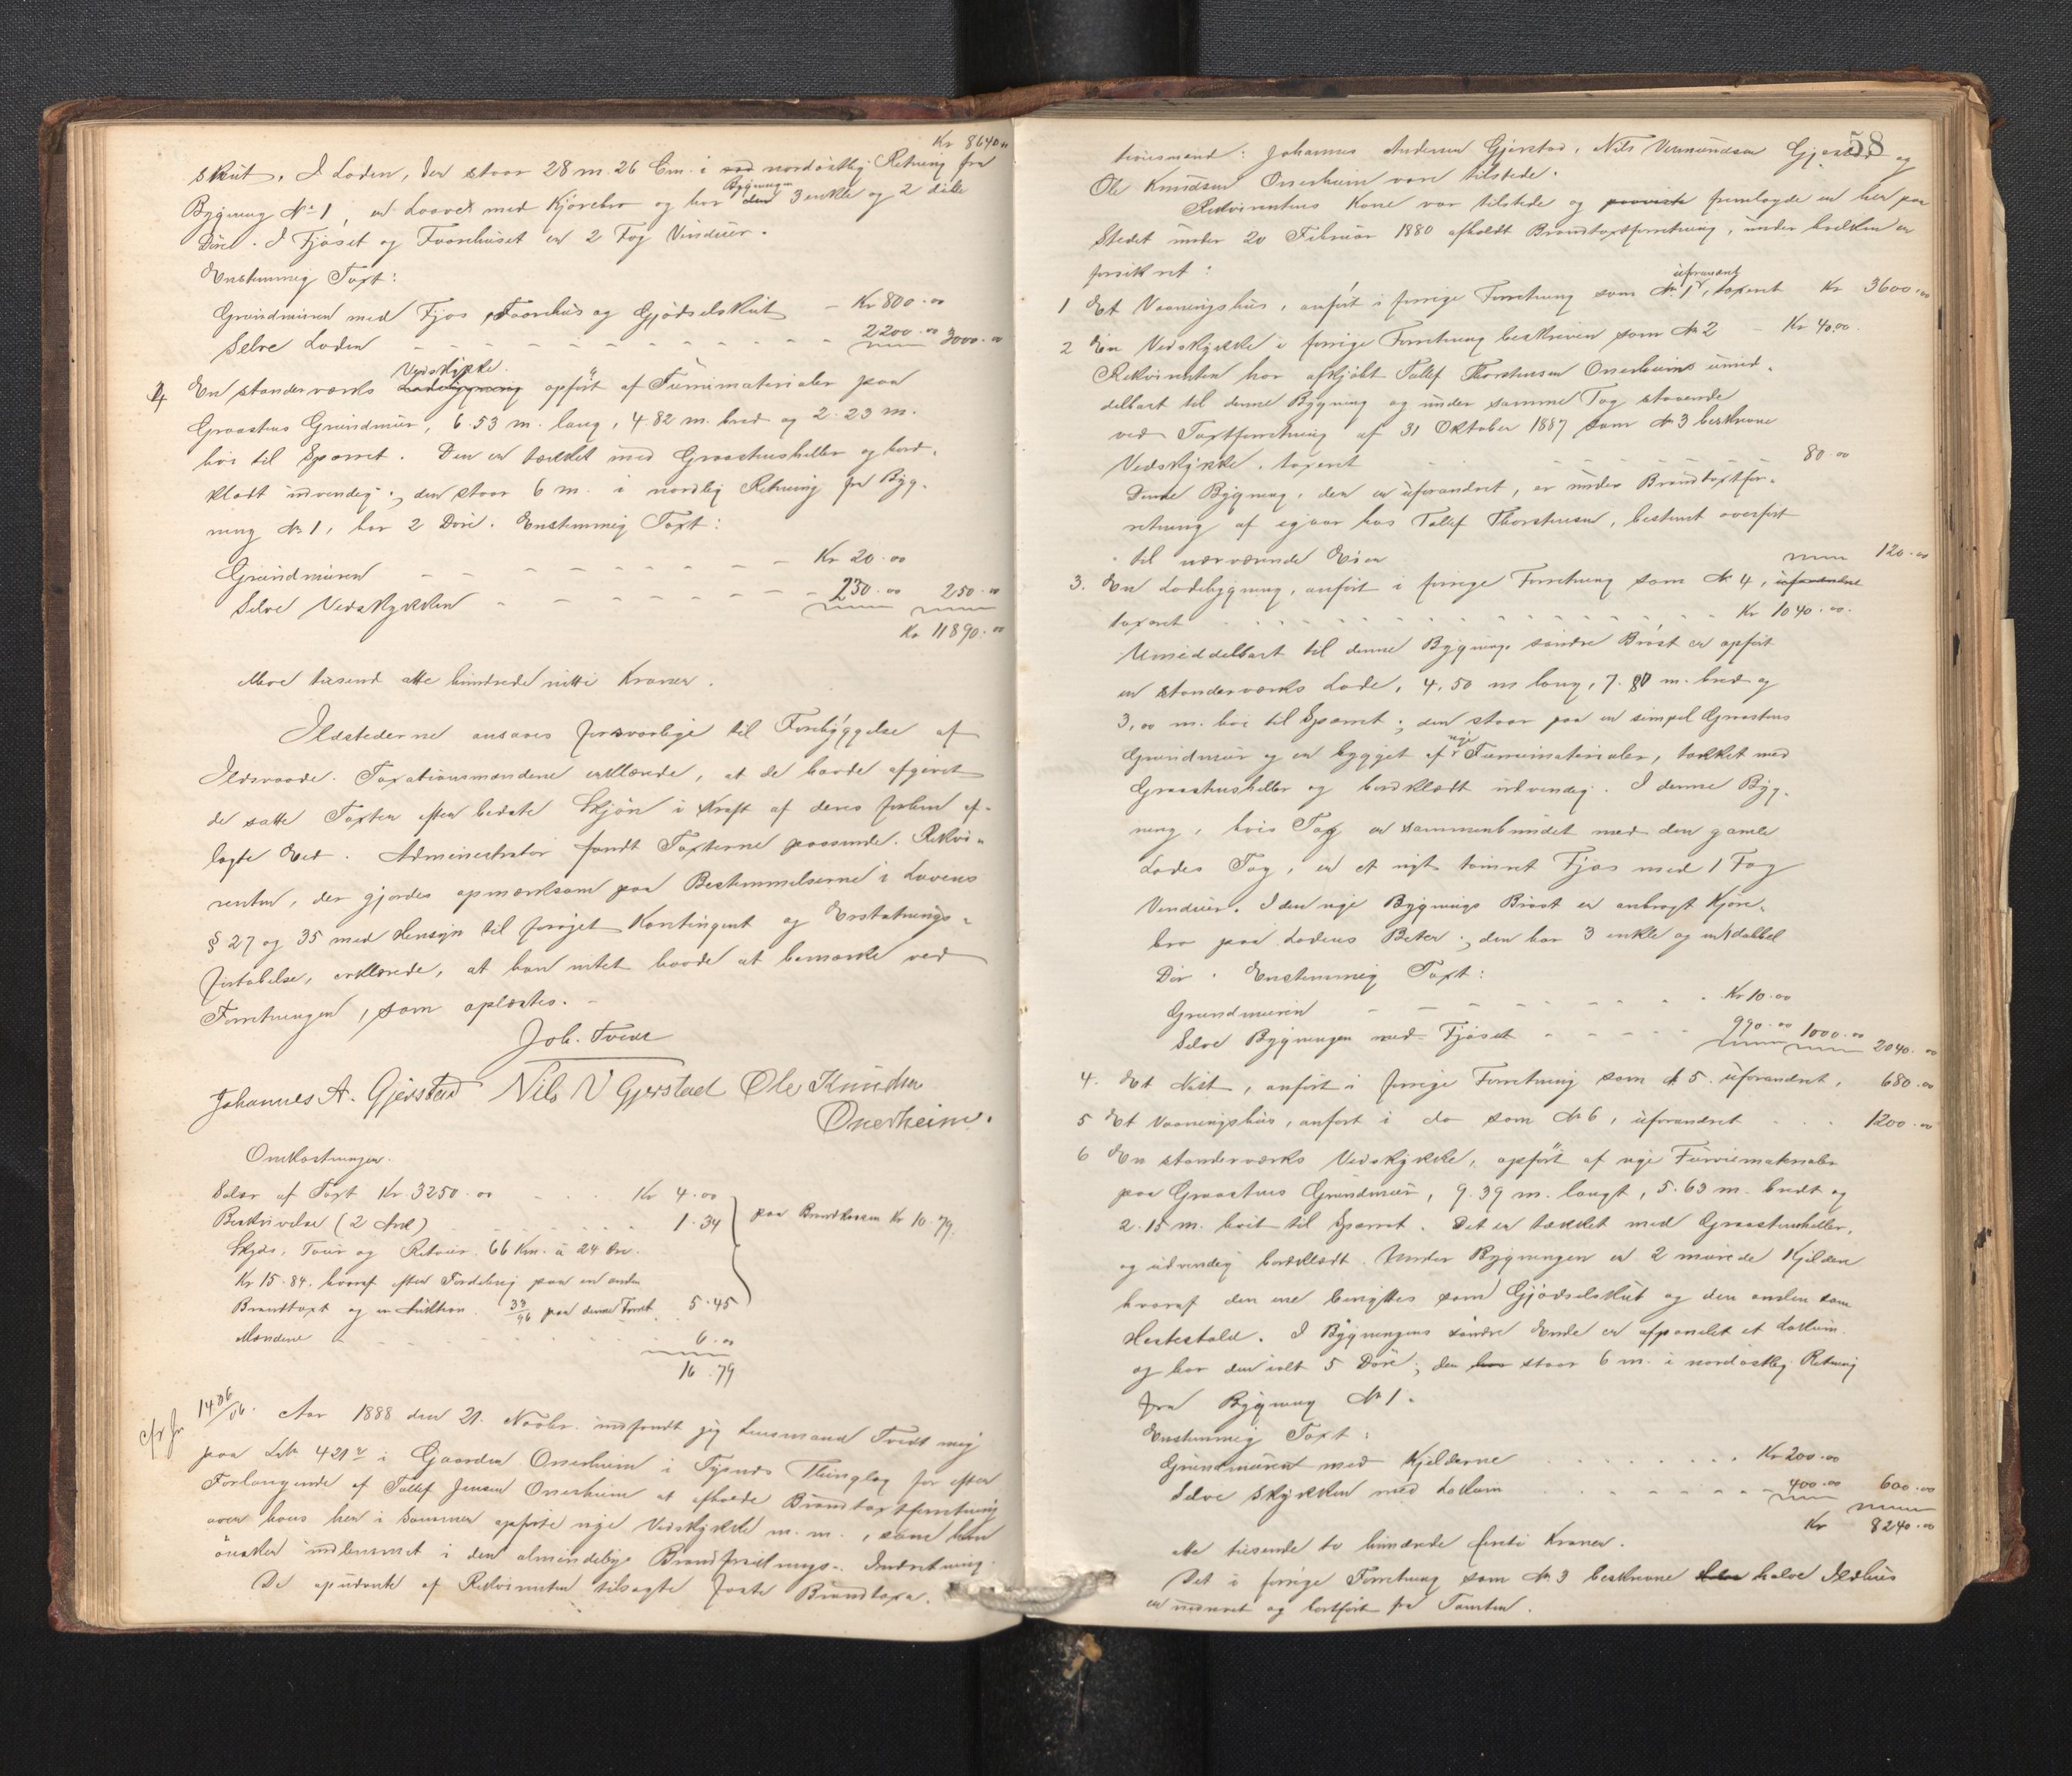 Kr 8640 "
skut. I Loden, der staar 28 m. 26 Cm. i nordøstlig Retning fra
Bygning № 1, er Laave med Kjørebro og har Bygningen 3 enkle og 2 doble
Døre. I Fjøset og Faarehuset er 2 Fag Vinduer.
Enstemmig Taxt:
Grundmuren med Fjøs, Faarehus og Gjødselskut – Kr 800.00
Selve Loden 2200.00 3000.00
4 En standerværks Vedskykke opført af Furrimaterialer paa
Graastens Grundmur, 6.53 m. lang, 4.82 m. bred og 2.23 m.
høi til Sparret. Den er tækket med Graastensheller og bord-
klædt udvendig; den staar 6 m. i nordlig Retning fra Byg-
ning № 1, har 2 Døre. Enstemmig Taxt:
Grundmuren Kr 20.00
Selve Vedskykken 230.00 250.00
Kr 11890.00
Elleve tusend otte hundrede nitti Kroner.
Ildstederne ansaaes forsvarlige til Forebyggelse af
Ildsvaade. Taxationsmændene erklærede, at de havde afgivet
de satte Taxter efter bedste Skjøn i Kraft af deres forhen af-
lagte Eed. Administrator fandt Taxterne passende. Rekvi-
renten, der gjordes opmærksom paa Bestemmelserne i Lovens
§ 27 og 35 med Hensyn til forøget Kontingent og Erstatnings-
fortabelse, erklærede, at han intet havde at bemærke ved
Forretningen, som oplæstes. –
Joh. Tveit
Johannes A. Gjerstad Nils V Gjerstad Ole Knudsen
Onerheim.
Omkostninger.
Salær af Taxt Kr 3250.00 Kr 4.00
Beskrivelse (2 Ark) 1.34 paa Brandkassen Kr 10.79.
Skyds, Tour og Retour 66 Km. a 24 Øre.
Kr 15.84. hvoraf efter Fordeling paa en anden
Brandtaxt og en Auktion 33/96 paa denne Forret. 5.45
Mændene 6.00
16.79
Aar 1888 den 21. Novbr. indfandt jeg Lensmand Tveit mig
paa Lnr 421 i Gaarden Onerheim i Tysnæs Thinglag for efter
Forlangende af Tollef Jensen Onerheim at afholde Brandtaxtforretning
over hans her i Sommer opførte nye Vedskykke m. m., som han
ønsker indlemmet i den almindelige Brandforsikrings-Indretning.
De opudvalgte af Rekvirenten tilsagte faste Brandtaxa-
58
tionsmænd: Johannes Andersen Gjerstad, Nils Vermundsen Gjerstad og
Ole Knudsen Onerheim vare tilstede.
Rekvirentens Kone var tilstede og fremlagde en her paa
Stedet under 20 Februar 1880 afholdt Brandtaxtforretning, under hvilken er
forsikret:
1 Et Vaaningshus, anført i forrige Forretning som № 1, uforandret, taxeret Kr 3600.00
2 En Vedskykke i forrige Forretning beskreven som № 2 – Kr 40.00.
Rekvirenten har afkjøbt Tollef Thorstensen Onerheims umid-
delbart til denne Bygning og under samme Tag staaende
ved Taxtforretning af 31 Oktober 1887 som № 3 beskrevne
Vedskykke, taxeret 80.00
Denne Bygning, der er uforandret, er under Brandtaxtfor-
retning af igaar hos Tollef Thorstensen, bestemt overført
til nærværende Eier 120.00
3. En Ladebygning, anført i forrige Forretning som № 4, uforandret
taxeret Kr 1040.00.
Umiddelbart til denne Bygnings søndre Brøst er opført
en standerværks Lade, 4,50 m lang, 7.80 m. bred og
3,00 m. høi til Sparret; den staar paa en simpel Graastens
Grundmur og er bygget af nye Furrimaterialer, tækket med
Graastensheller og bordklædt udvendig. I denne Byg-
ning, hvis Tag er sammenbundet med den gamle
Lades Tag, er et nyt tømret Fjøs med 1 Fag
Vinduer. I den nye Bygnings Brøst er anbragt Kjøre-
bro paa Ladens Beter; den har 3 enkle og en dobbel
Dør. Enstemmig Taxt:
Grundmuren Kr 10.00
Selve Bygningen med Fjøset 990.00 1000.00 2040.00
4. Et Nøst, anført i forrige Forretning som № 5 uforandret, 680.00
5 Et Vaaningshus, anført i do som № 6, uforandret 1200.00
6 En standerværks Vedskykke, opført af nye Furriematerialer
paa Graastens Grundmur, 9.39 m. langt, 5.63 m. bredt og
2.15 m. høit til Sparret. Det er tækket med Graastensheller,
og udvendig bordklædt. Under Bygningen er 2 murede Kjeldere
hvoraf den ene benyttes som Gjødselskut og den anden som
Hestestald. I Bygningens søndre Ende er afpanelet et Lokum.
og har den ialt 5 Døre; den staar 6 m. i nordøstlig Retning
fra Bygning № 1.
Enstemmig Taxt:
Grundmuren med Kjelderne Kr 200.00
Selve Skykken med Lokum 400.00 600.00
Kr 8240.00
Otte tusende to hundrede førti Kroner.
Det i forrige Forretning som № 3 beskrevne halve Ildhus
er nedrevet og bortført fra Tomten.